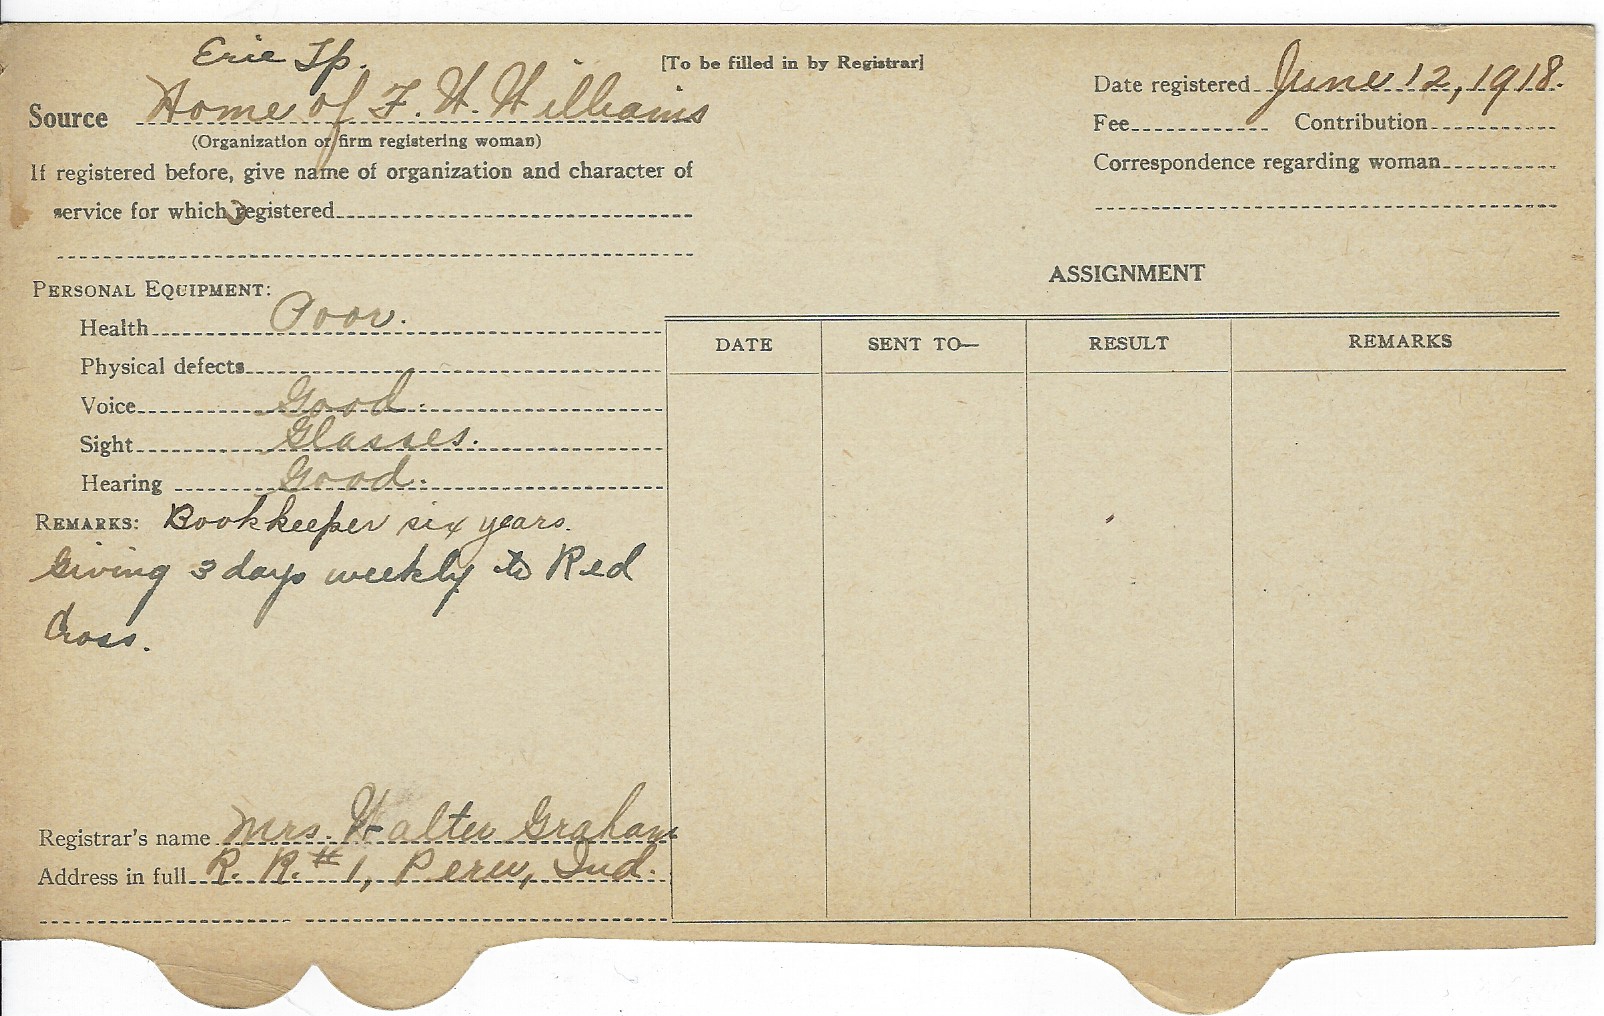 Erie Tp.
[To be filled in by Registrar]
Source Home of F. W. Williams
(Organization or firm registering woman)
If registered before, give name of organization and character of
service for which registered
Date registered June 12, 1918.
Fee Contribution
Correspondence regarding woman
PERSONAL EQUIPMENT:
Health Poor.
Physical defects
Voice Good.
Sight Glasses.
Hearing Good.
REMARKS: Bookkeeper six years.
Giving 3 days weekly to Red
Cross.
Registrar's name Mrs. Walter Graham
Address in full R. R. #1, Peru, Ind.
ASSIGNMENT
DATE SENT TO— RESULT REMARKS